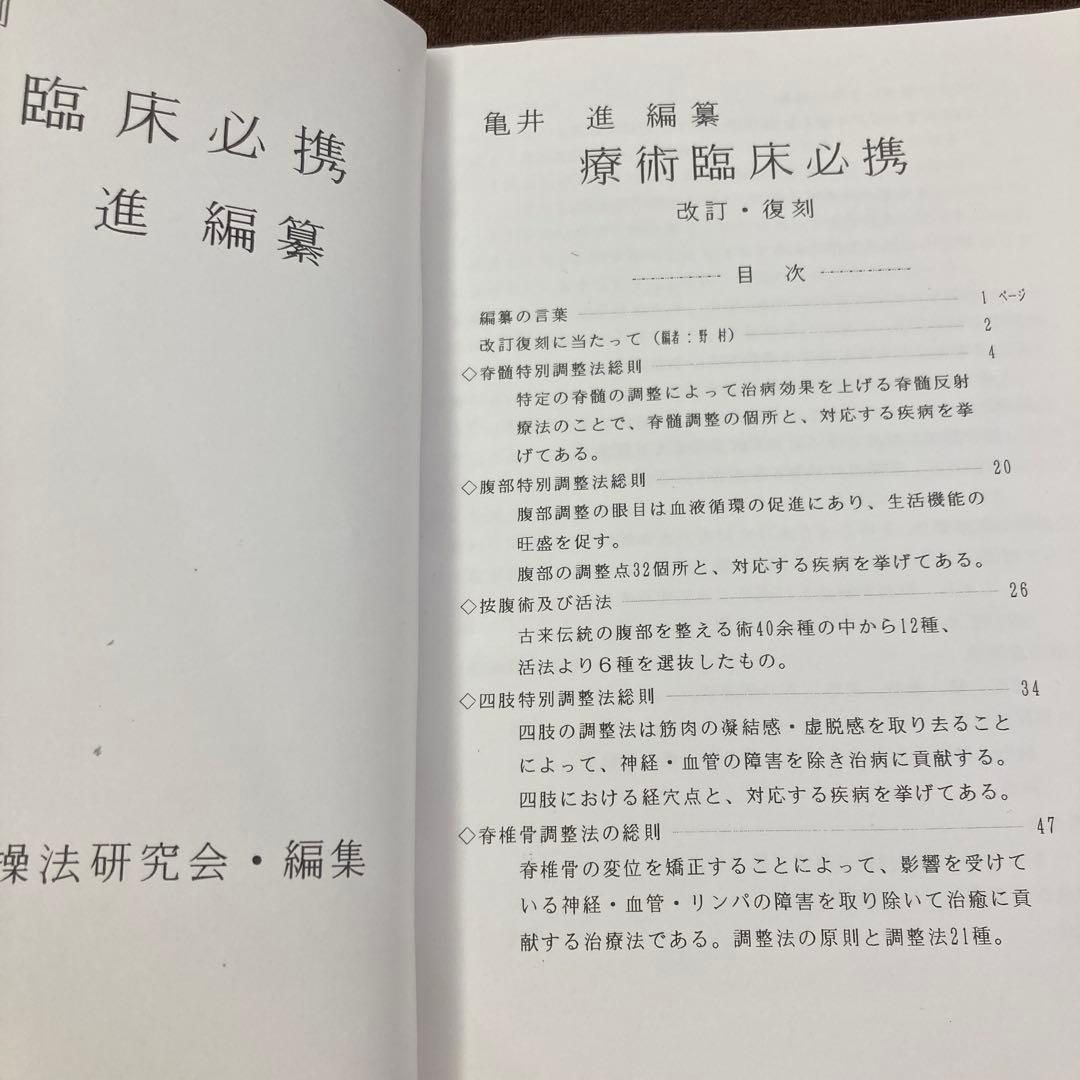 臨床必携
進 編纂
操法研究会・編集
亀井 進 編纂
療術臨床必携
改訂・復刻
目 次
編纂の言葉 1 ページ
改訂復刻に当たって(編者:野村) 2
◇脊髄特別調整法総則 4
特定の脊髄の調整によって治病効果を上げる脊髄反射
療法のことで、脊髄調整の個所と、対応する疾病を挙
げてある。
◇腹部特別調整法総則 20
腹部調整の眼目は血液循環の促進にあり、生活機能の
旺盛を促す。
腹部の調整点32個所と、対応する疾病を挙げてある。
◇按腹術及び活法 26
古来伝統の腹部を整える術40余種の中から12種、
活法より6種を選抜したもの。
◇四肢特別調整法総則 34
四肢の調整法は筋肉の凝結感・虚脱感を取り去ること
によって、神経・血管の障害を除き治病に貢献する。
四肢における経穴点と、対応する疾病を挙げてある。
◇脊椎骨調整法の総則 47
脊椎骨の変位を矯正することによって、影響を受けて
いる神経・血管・リンパの障害を取り除いて治癒に貢
献する治療法である。調整法の原則と調整法21種。